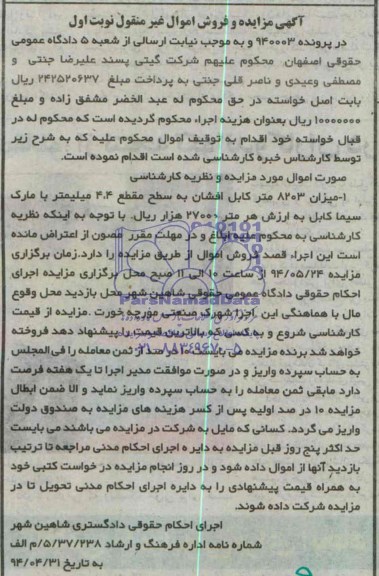 آگهی مزایده و فروش اموال غیر منقول نوبت اول
در پرونده ۹۴۰۰۰۳ و به موجب نیابت ارسالی از شعبه ۵ دادگاه عمومی
حقوقی اصفهان محکوم علیهم شرکت گیتی پسند علیرضا جنتی و
مصطفی وعیدی و ناصر قلی جنتی به پرداخت مبلغ ۲۴۲۵۲۰۶۳۷ ریال
بابت اصل خواسته در حق محکوم له عبد الخضر مشفق زاده و مبلغ
۱۰۰۰۰۰۰۰ ریال بعنوان هزینه اجراء محکوم گردیده است که محکوم له در
قبال خواسته خود اقدام به توقیف اموال محکوم علیه که به شرح زیر
توسط کارشناس خبره کارشناسی شده است اقدام نموده است.
صورت اموال مورد مزایده و نظریه کارشناسی
۱-میزان ۸۲۰۳ متر کابل افشان به سطح مقطع ۴.۴ میلیمتر با مارک
سیما کابل به ارزش هر متر ۲۷۰۰۰ هزار ریال. با توجه به اینکه نظریه
کارشناسی به محکوم علیه ابلاغ و در مهلت مقرر مصون از اعتراض مانده
است این اجراء قصد فروش اموال از طریق مزایده را دارد.زمان برگزاری
مزایده ۹۴/۰۵/۲۴ از ساعت ۱۰ الی ۱۱ صبح محل برگزاری مزایده اجرای
احکام حقوقی دادگاه عمومی حقوقی شاهین شهر محل بازدید محل وقوع
مال با هماهنگی این اجرا شهرک صنعتی مورچه خورت .مزایده از قیمت
کارشناسی شروع و به کسی که بالاترین قیمت را پیشنهاد دهد فروخته
خواهد شد برنده مزایده می بایست ۱۰ درصد از ثمن معامله را فی المجلس
به حساب سپرده واریز و در صورت موافقت مدیر اجرا تا یک هفته فرصت
دارد مابقی ثمن معامله را به حساب سپرده واریز نماید و الا ضمن ابطال
مزایده ۱۰ در صد اولیه پس از کسر هزینه های مزایده به صندوق دولت
واریز می گردد. کسانی که مایل به شرکت در مزایده می باشند می بایست
حد اکثر پنج روز قبل مزایده به دایره اجرای احکام مدنی مراجعه تا ترتیب
بازدید آنها از اموال داده شود و در روز انجام مزایده در خواست کتبی خود
به همراه قیمت پیشنهادی را به دایره اجرای احکام مدنی تحویل تا در
مزایده شرکت داده شوند.
اجرای احکام حقوقی دادگستری شاهین شهر
شماره نامه اداره فرهنگ و ارشاد ۵/۳۷/۲۳۸/م الف
به تاریخ ۹۴/۰۴/۳۱
ParsNamadData
۰۲۱-۸۸۳۴۹۶۷۰-۵